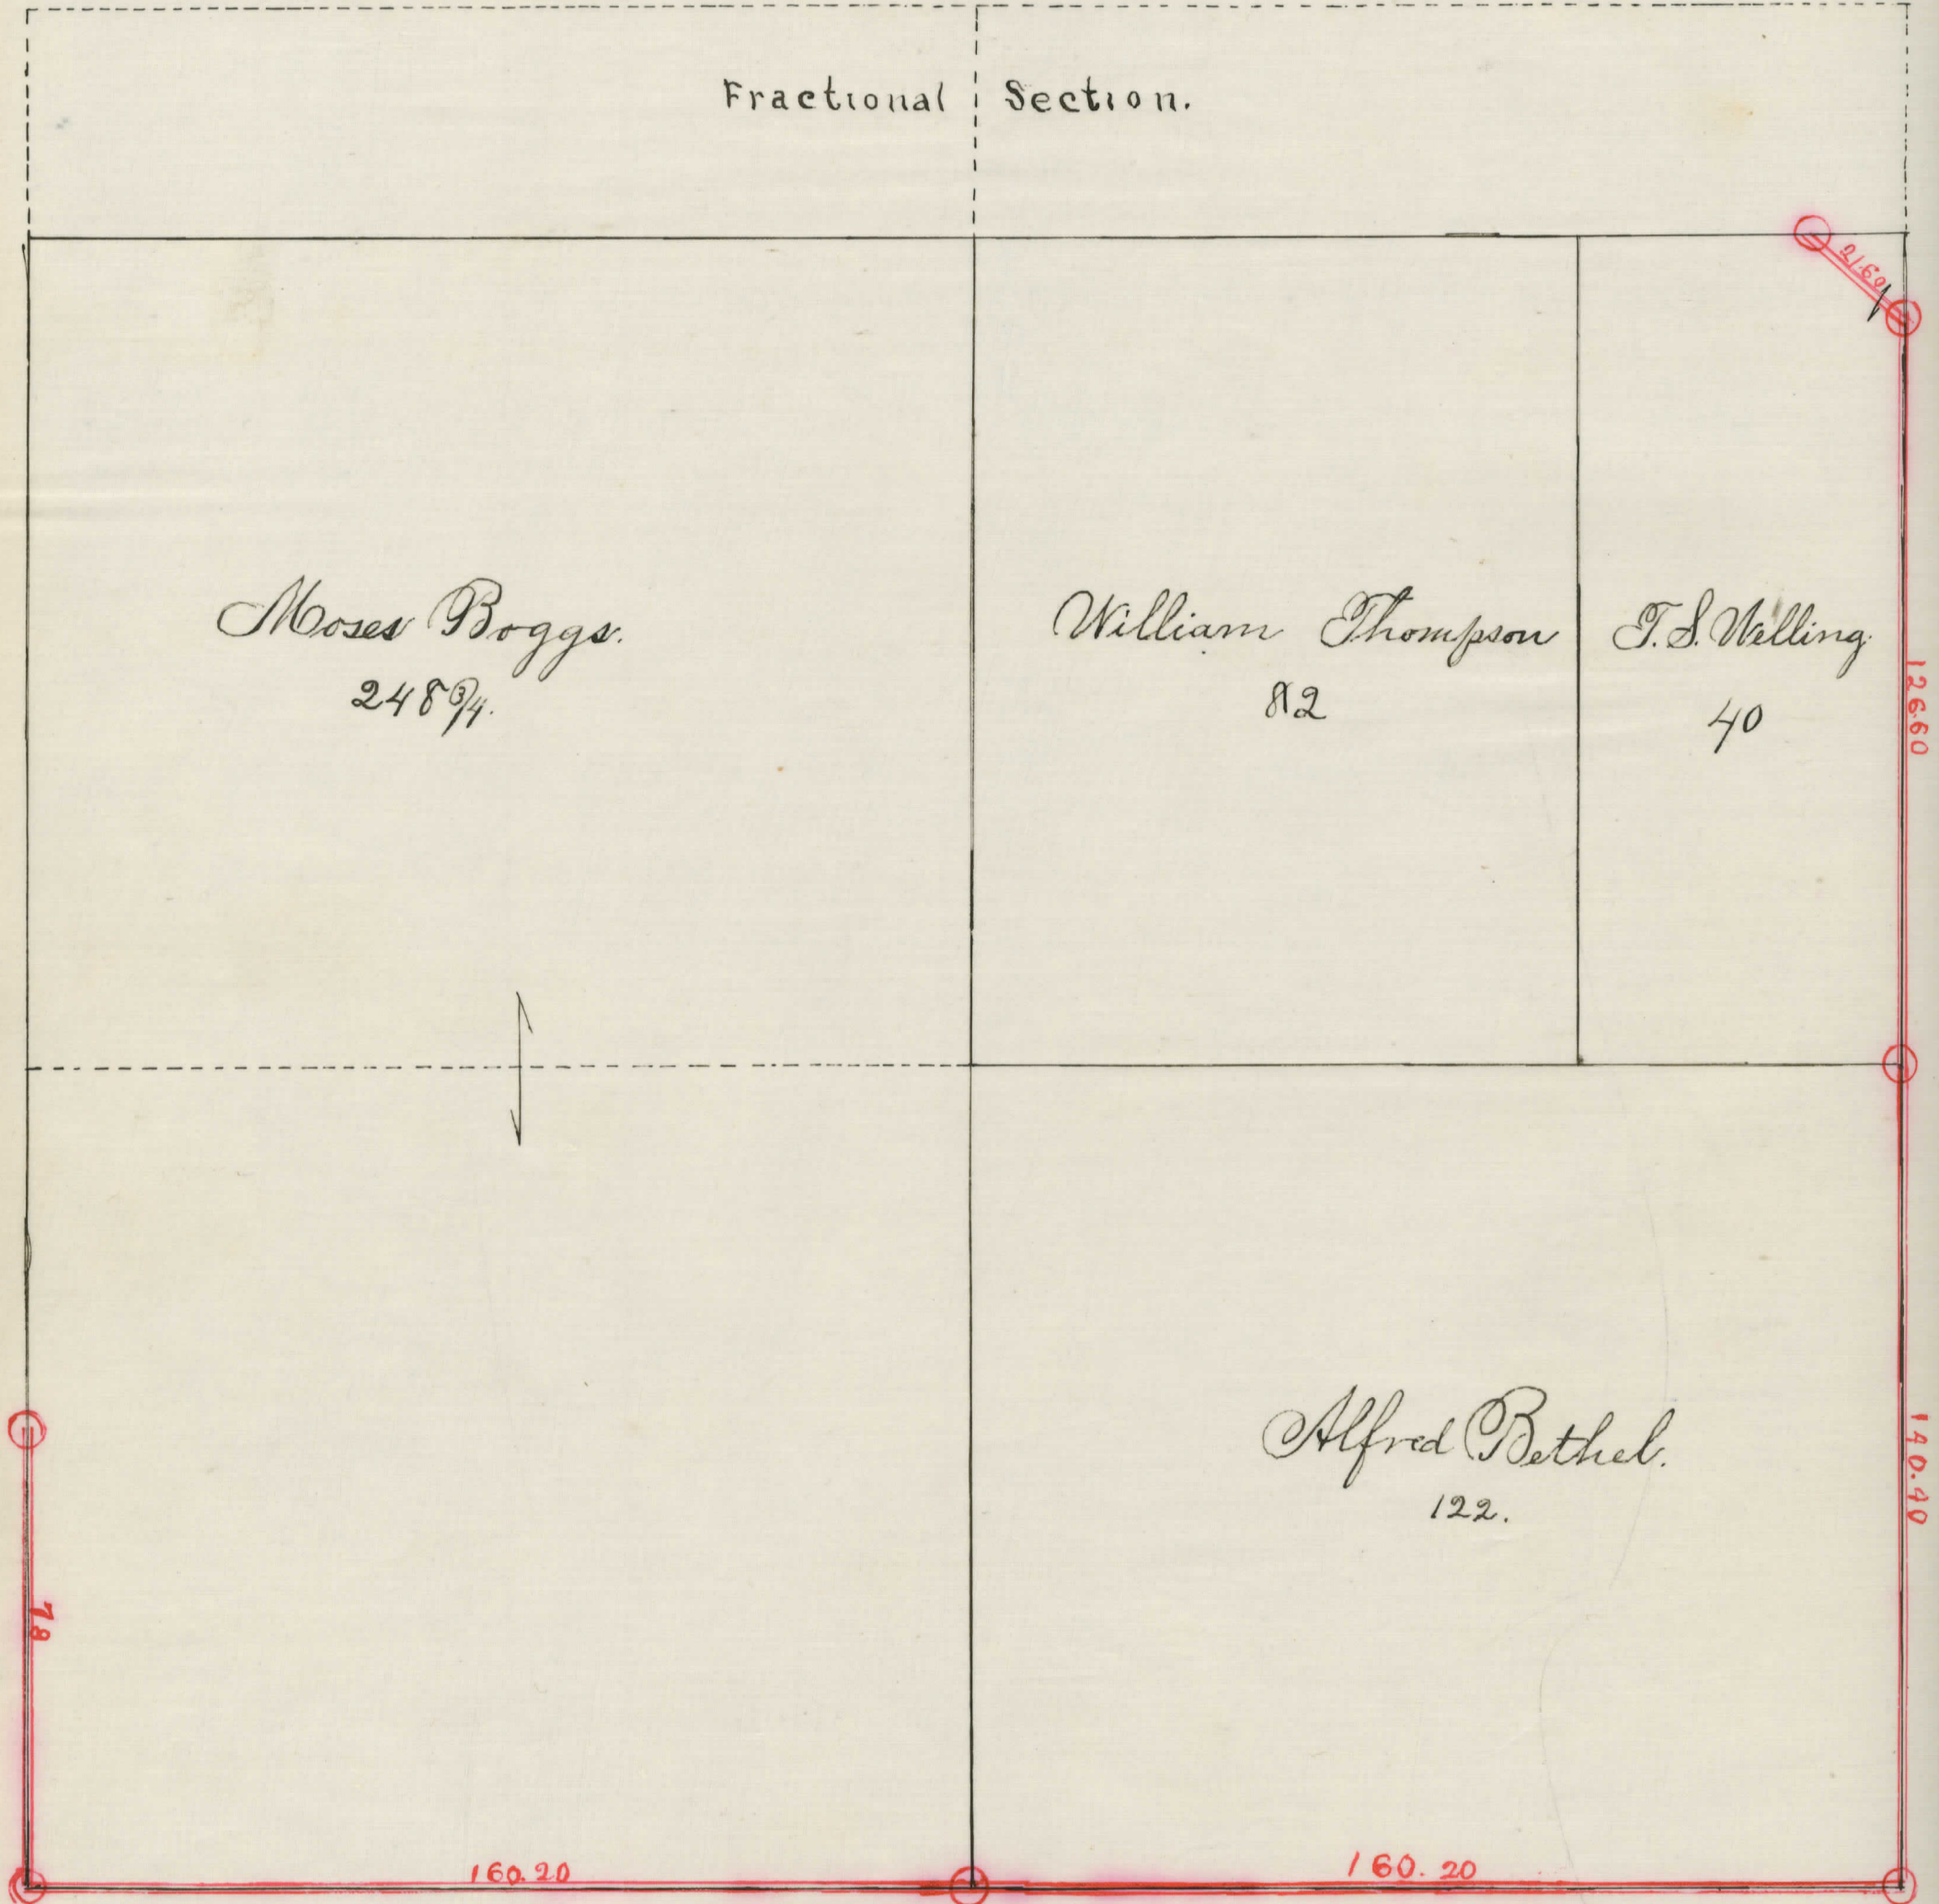 Fractional Section.
21.60
Moses Boggs.
248 3/4.
William Thompson
82
T. S. Welling.
40
126.60
Alfred Bethel.
122.
140.40
78
160.20
160.20